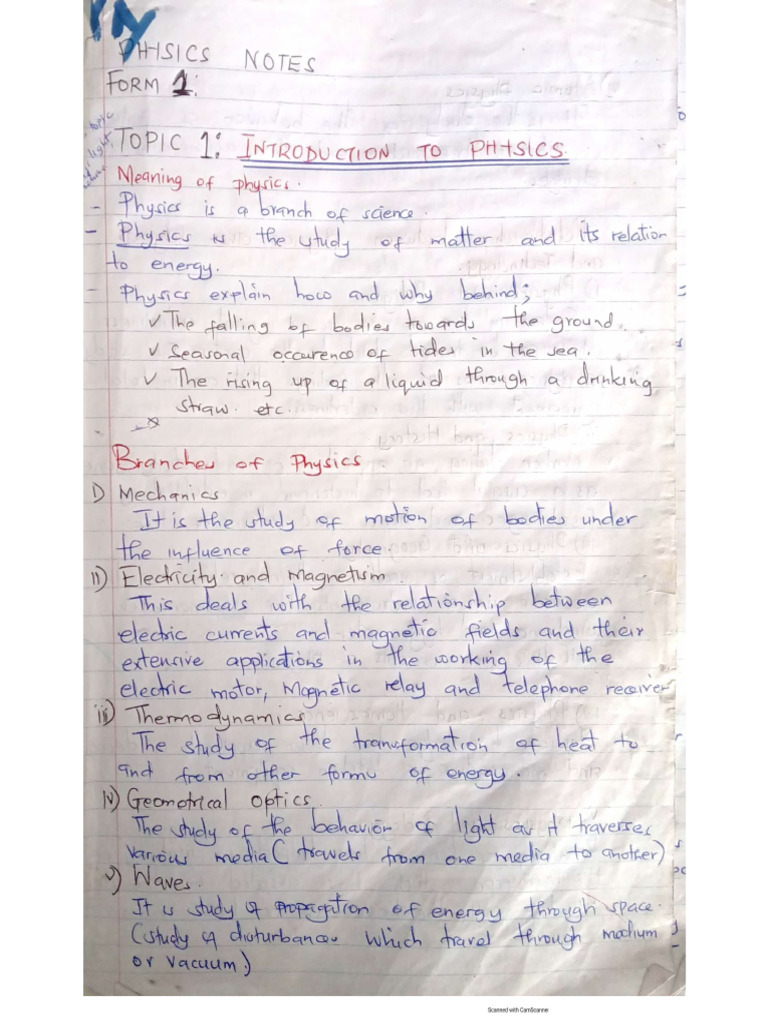 PHYSICS NOTES
FORM 1:
TOPIC 1: INTRODUCTION TO PHYSICS
Meaning of physics.
- Physics is a branch of science.
- Physics is the study of matter and its relation
to energy.
- Physics explain how and why behind;
✓ The falling of bodies towards the ground.
✓ Seasonal occurence of tides in the sea.
✓ The rising up of a liquid through a drinking
straw. etc.
Branches of Physics
I) Mechanics
It is the study of motion of bodies under
the influence of force.
II) Electricity and Magnetism.
This deals with the relationship between
electric currents and magnetic fields and their
extensive applications in the working of the
electric motor, Magnetic relay and telephone receiver
iii) Thermodynamics
The study of the transformation of heat to
and from other forms of energy.
IV) Geometrical optics.
The study of the behavior of light as it traverses
various media( travels from one media to another)
v) Waves.
It is study of propagation of energy through space.
(study of disturbances which travel through medium
or vacuum.)
Scanned with CamScanner